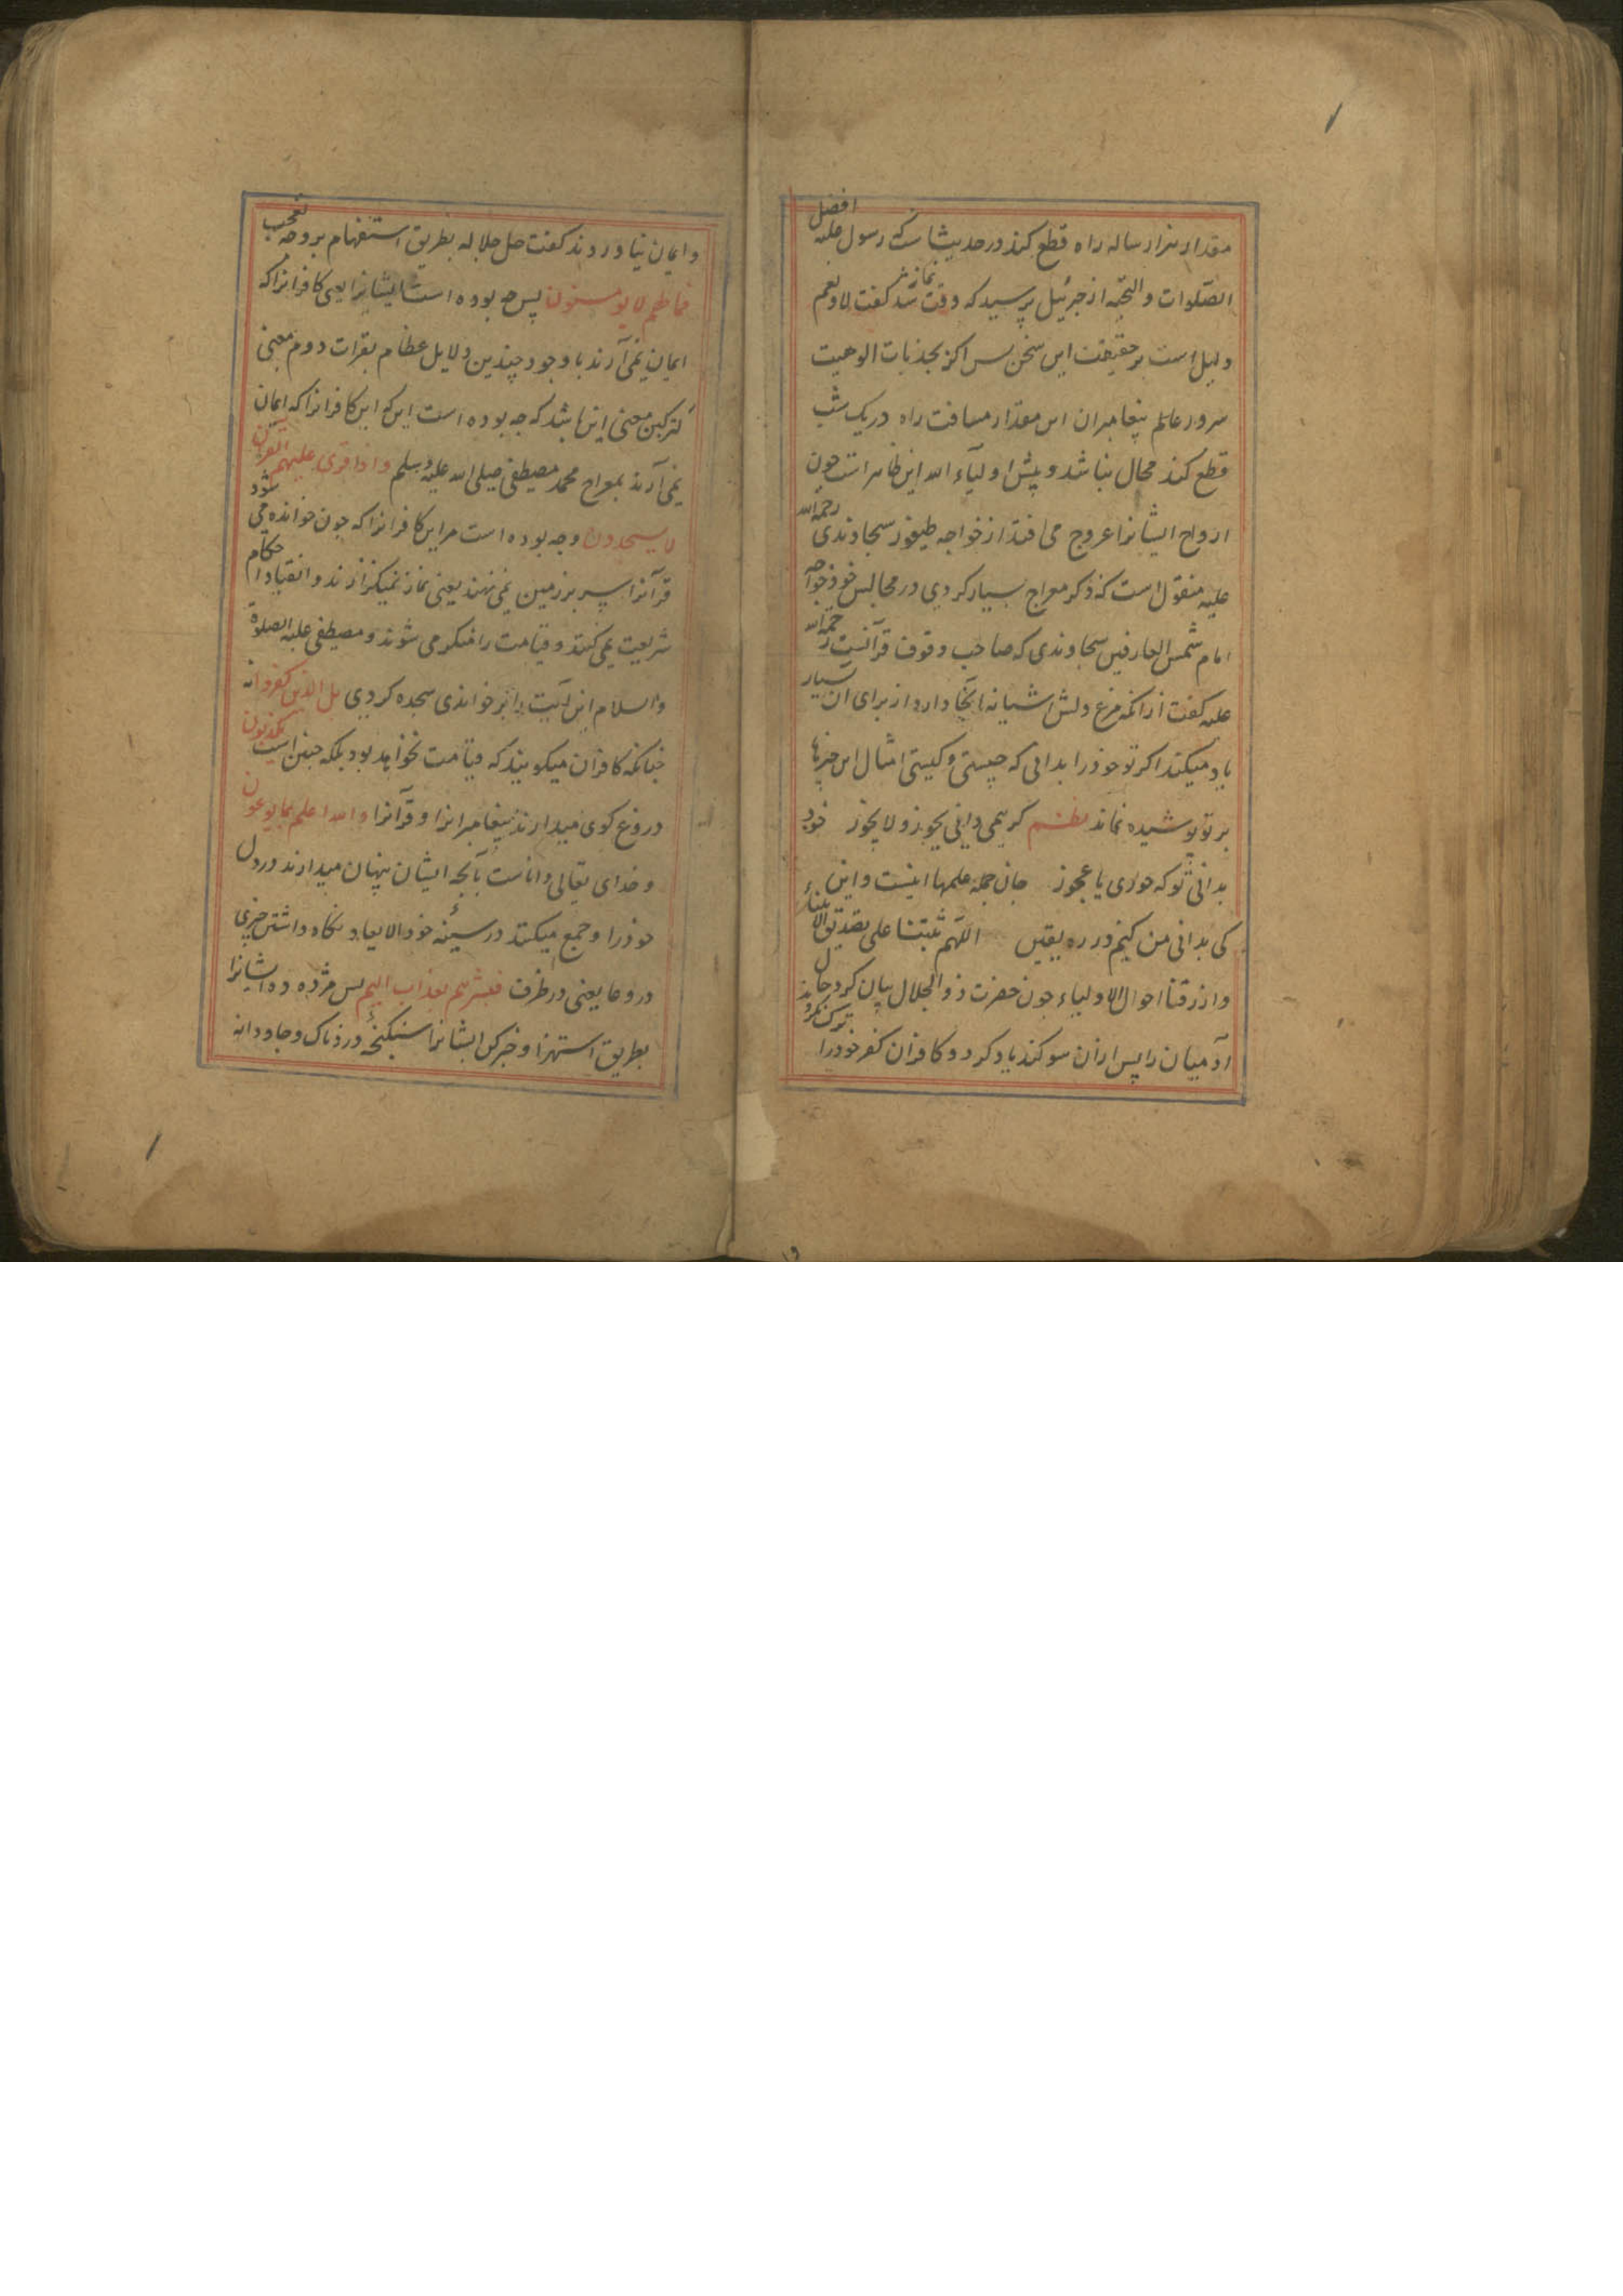 مقدار هزار ساله راه قطع کند در حدیث است که رسول علیه افضل
الصلوات والتحیه از جبرئیل پرسید که وقت نماز شد گفت لا و نعم
دلیل است بر حقیقت این سخن پس اگر بجذبات الوهیت
سرور عالم پیغامبران این مقدار مسافت راه در یک شب
قطع کند محال نباشد و پیش اولیاء الله این ظاهر است جون
ارواح ایشانرا عروج می افتد از خواجه طیفور سجاوندی رحمة الله
علیه منقول است که ذکر معراج بسیار کردی در مجالس خود خواجه
امام شمس العارفین سجاوندی که صاحب وقوف قرآنست رحمة الله
علیه گفت از انکه مرغ دلش آشیانه آنجا دارد از برای آن بسیار
یاد میکند اکر تو خود را بدانی که چیستی و کیستی امثال این خبرها
بر تو پوشیده نماند نظم کر همی دانی یجوز و لا یجوز خود
بدانی تو که حوری یا عجوز جان جمله علمها اینست و این
کی بدانی من کیم در ره یقین اللهم ثبتنا علی تصدیق الانبیاء
وارزقنا احوال الاولیاء جون حضرت ذو الجلال بیان کرد حال
آدمیان را پس ازان سوکند یاد کرد و کافران کفر خود را ترک نکردند
وایمان نیاوردند گفت جل جلاله بطریق استفهام بر وجه تعجب
فما لهم لا یومنون پس جه بوده است ایشانرا یعنی کافرانرا که
ایمان نمی آرند با وجود چندین دلایل عظام بقرات دوم معنی
لترکبن معنی این باشد که جه بوده است این کافرانرا که ایمان
نمی آرند بمعراج محمد مصطفی صلی الله علیه وسلم واذا قری علیهم القرآن
لا یسجدون وجه بوده است مر این کافرانرا که جون خوانده می شود
قرآنرا سر بر زمین نمی نهند یعنی نماز نمیکزارند وانقیاد احکام
شریعت نمی کنند و قیامت را منکر می شوند و مصطفی علیه الصلوة
والسلام این آیت را بر خواندی سجده کردی بل الذین کفروا یکذبون
جنانکه کافران میکویند که قیامت نخواهد بود بلکه جنین است
دروغ کوی میدارند پیغامبرانرا و قرآنرا والله اعلم بما یوعون
و خدای تعالی داناست بآنجه ایشان پنهان میدارند در دل
خود را و جمع میکنند در سینه خود الایعاء نکاه داشتن چیزی
در وعا یعنی در ظرف فبشرهم بعذاب الیم پس مژده ده ایشانرا
بطریق استهزا و خبر کن ایشانرا بشکنجه دردناک و جاودانه